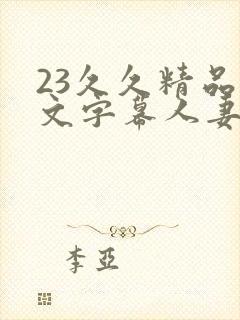 23久久精品
文字幕人妻
李亞